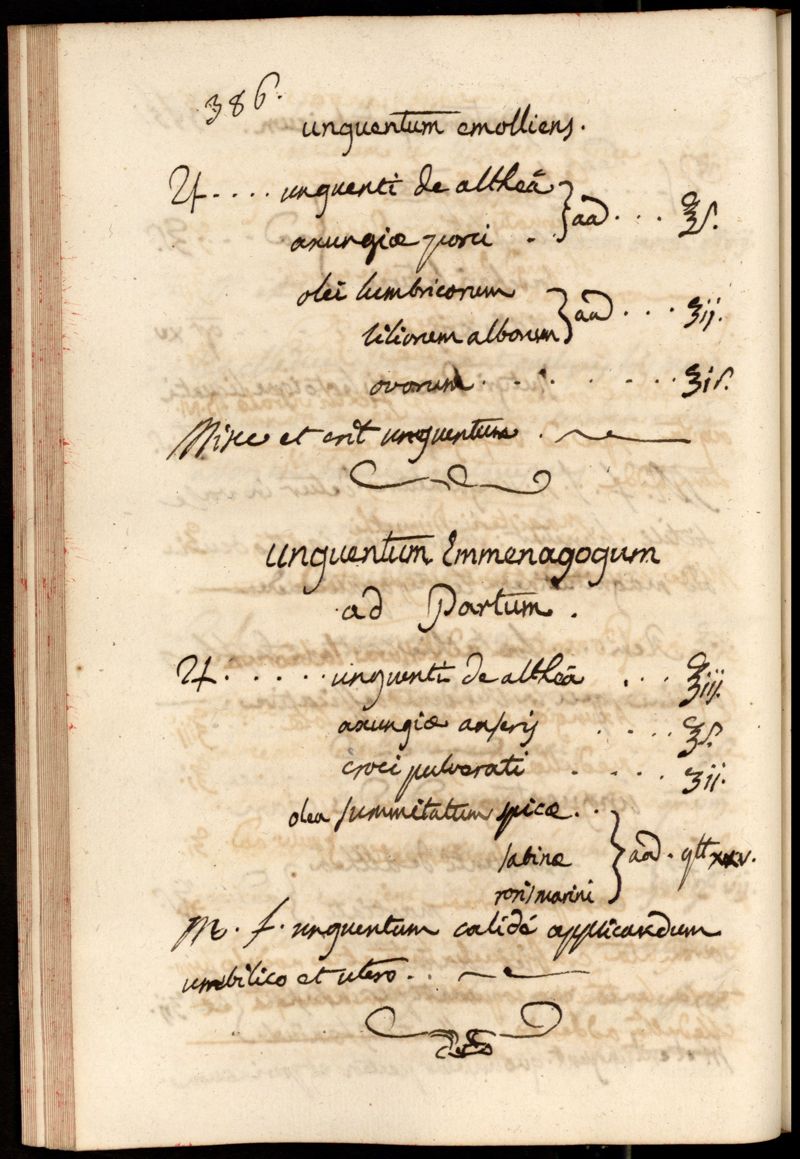 386.
unguentum emolliens.
♃ .... unguenti de altheâ } aa ... ℥ß.
axungiæ porci .
olei lumbricorum
liliorum alborum } aa ... ʒij.
ovorum ... ʒiß.
Misce et erit unguentum .
unguentum Emmenagogum
ad Partum .
♃ ..... unguenti de altheâ ... ℥iij.
axungiæ anseris .... ℥ß.
croci pulverati .... ʒij.
olea summitatum spicæ . .
sabinæ } aa . gtt xxv.
rorismarini
M . f . unguentum calidé applicandum
umbilico et utero . .